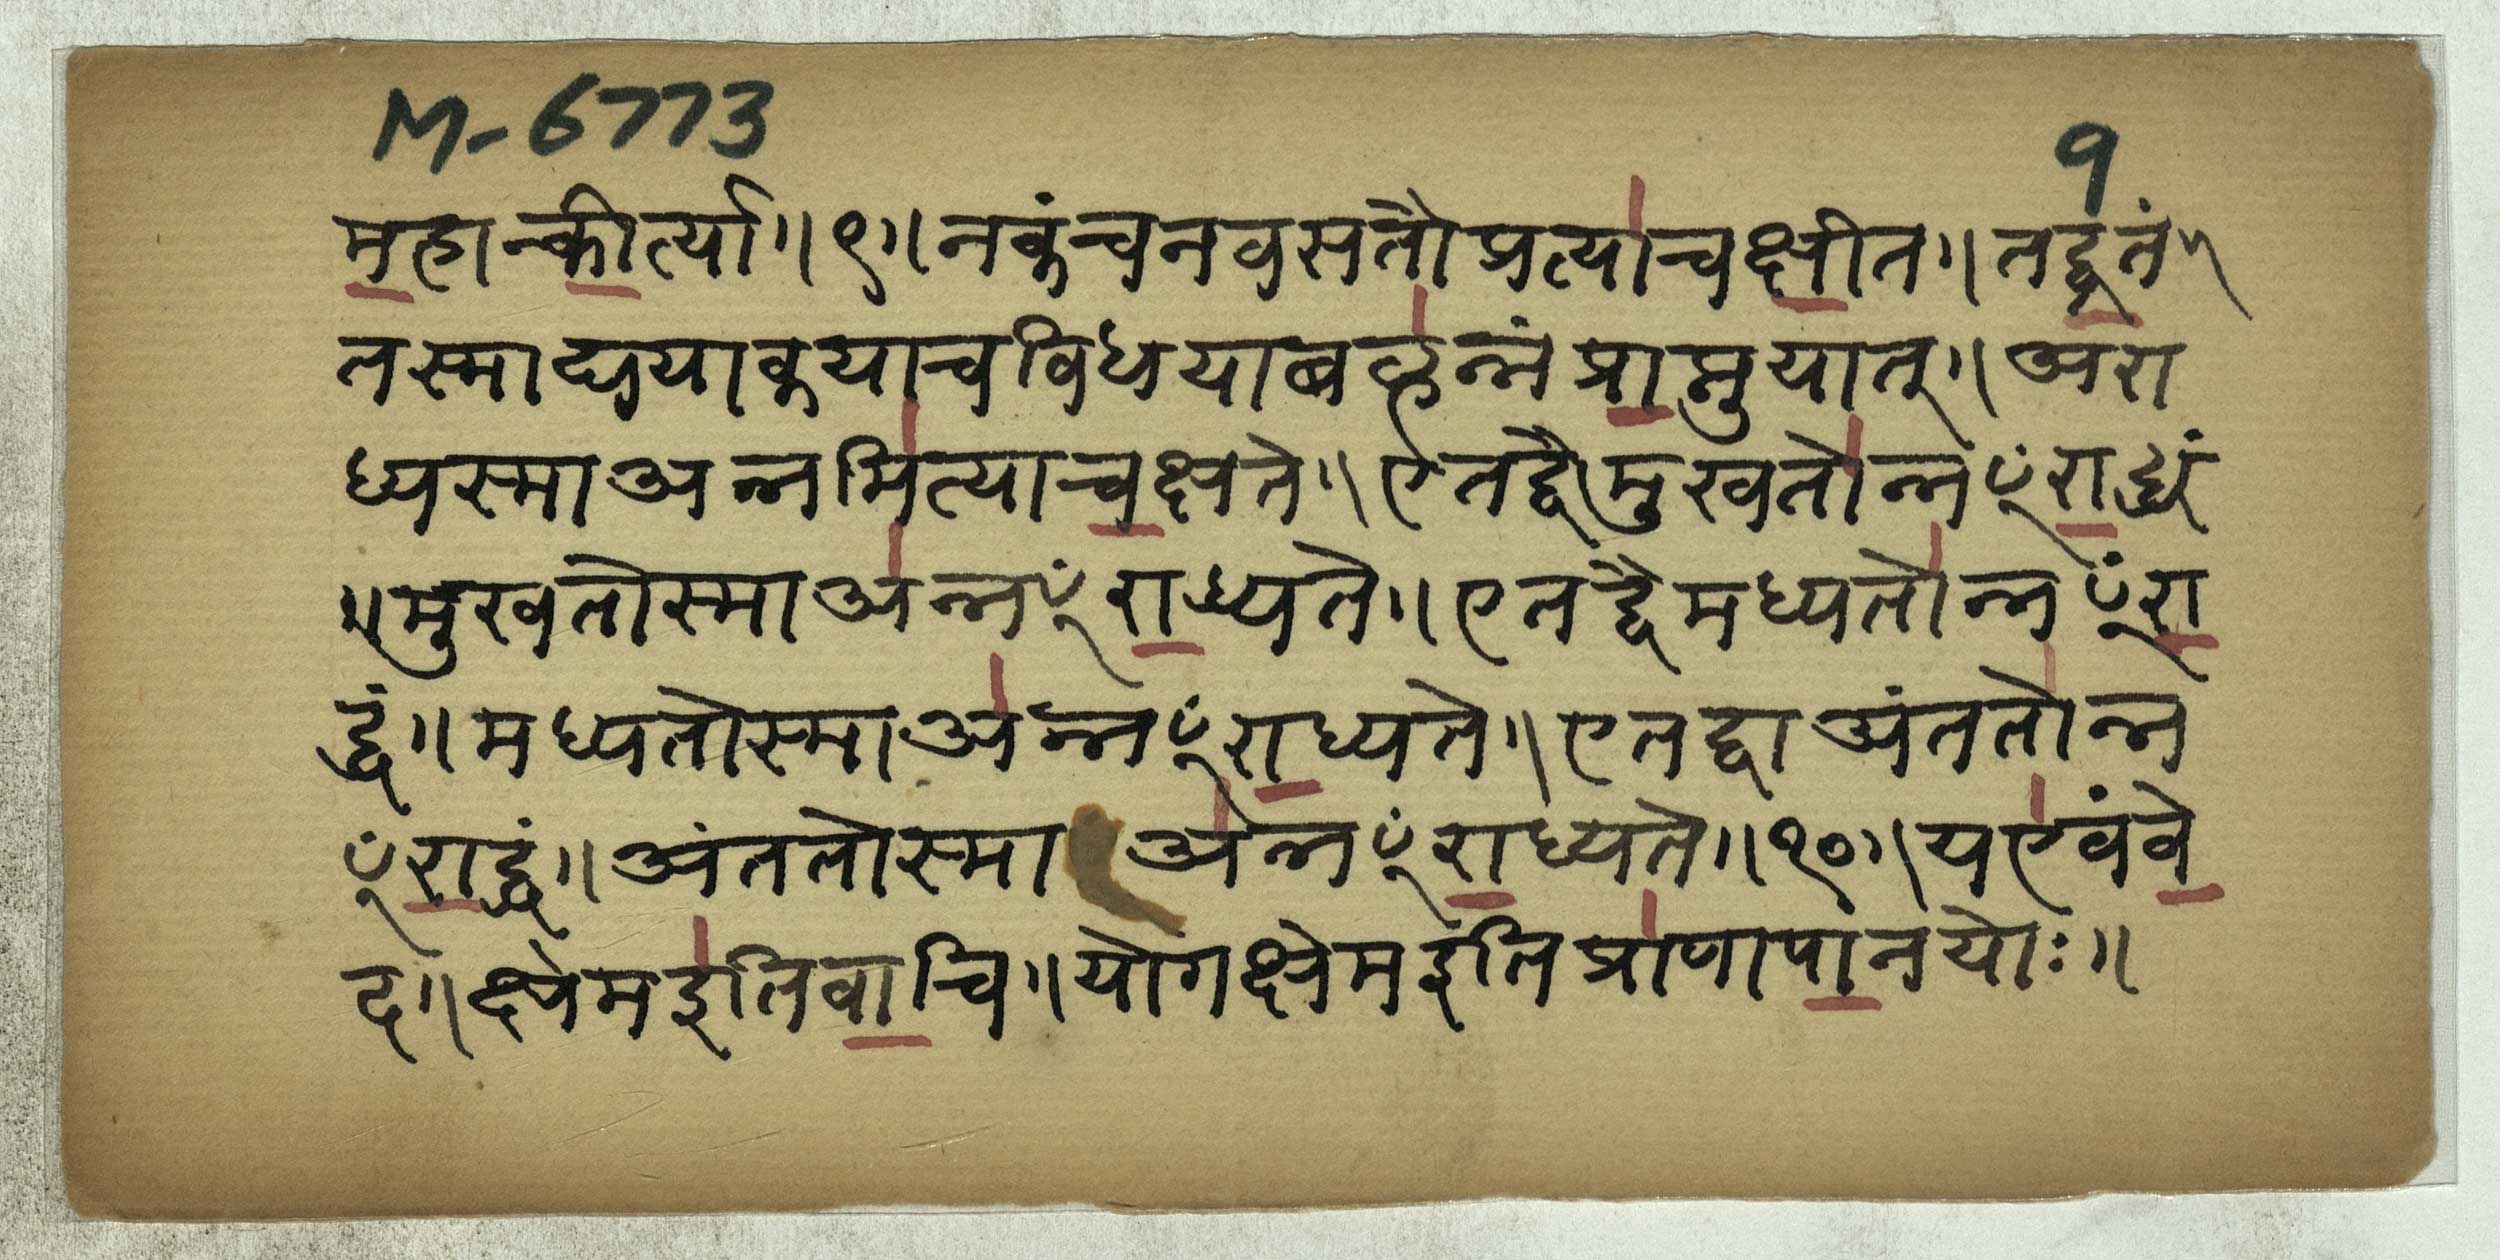 M-6773
१
म॒हान्की॒र्त्या॥९॥नकंचनवसतौप्रत्या॑चक्षी॒त॥तद्व्र॒तं॥
तस्माद्ययाकयाचविधयाब॑ह्वन्नंप्रा॒प्नुयात्॥अरा
ध्यस्माअन्नमि॑त्याच॒क्षते॥एतद्वैमुखतो᳚न्नꣳरा॒द्धं
॥मुखतोस्माअ॑न्नꣳरा॒ध्यते॥एतद्वैमध्यतो᳚न्नꣳरा॒
द्धं॥मध्यतोस्माअ॑न्नꣳरा॒ध्यते॥एतद्वाअंततो᳚न्न
ꣳरा॒द्धं॥अंततोस्माअ॑न्नꣳरा॒ध्यते॥१०॥यए॑वंवे॒
द॥क्षेमइ॑तिवा॒चि॥योगक्षेमइतिप्रा॑णापा॒नयोः॥